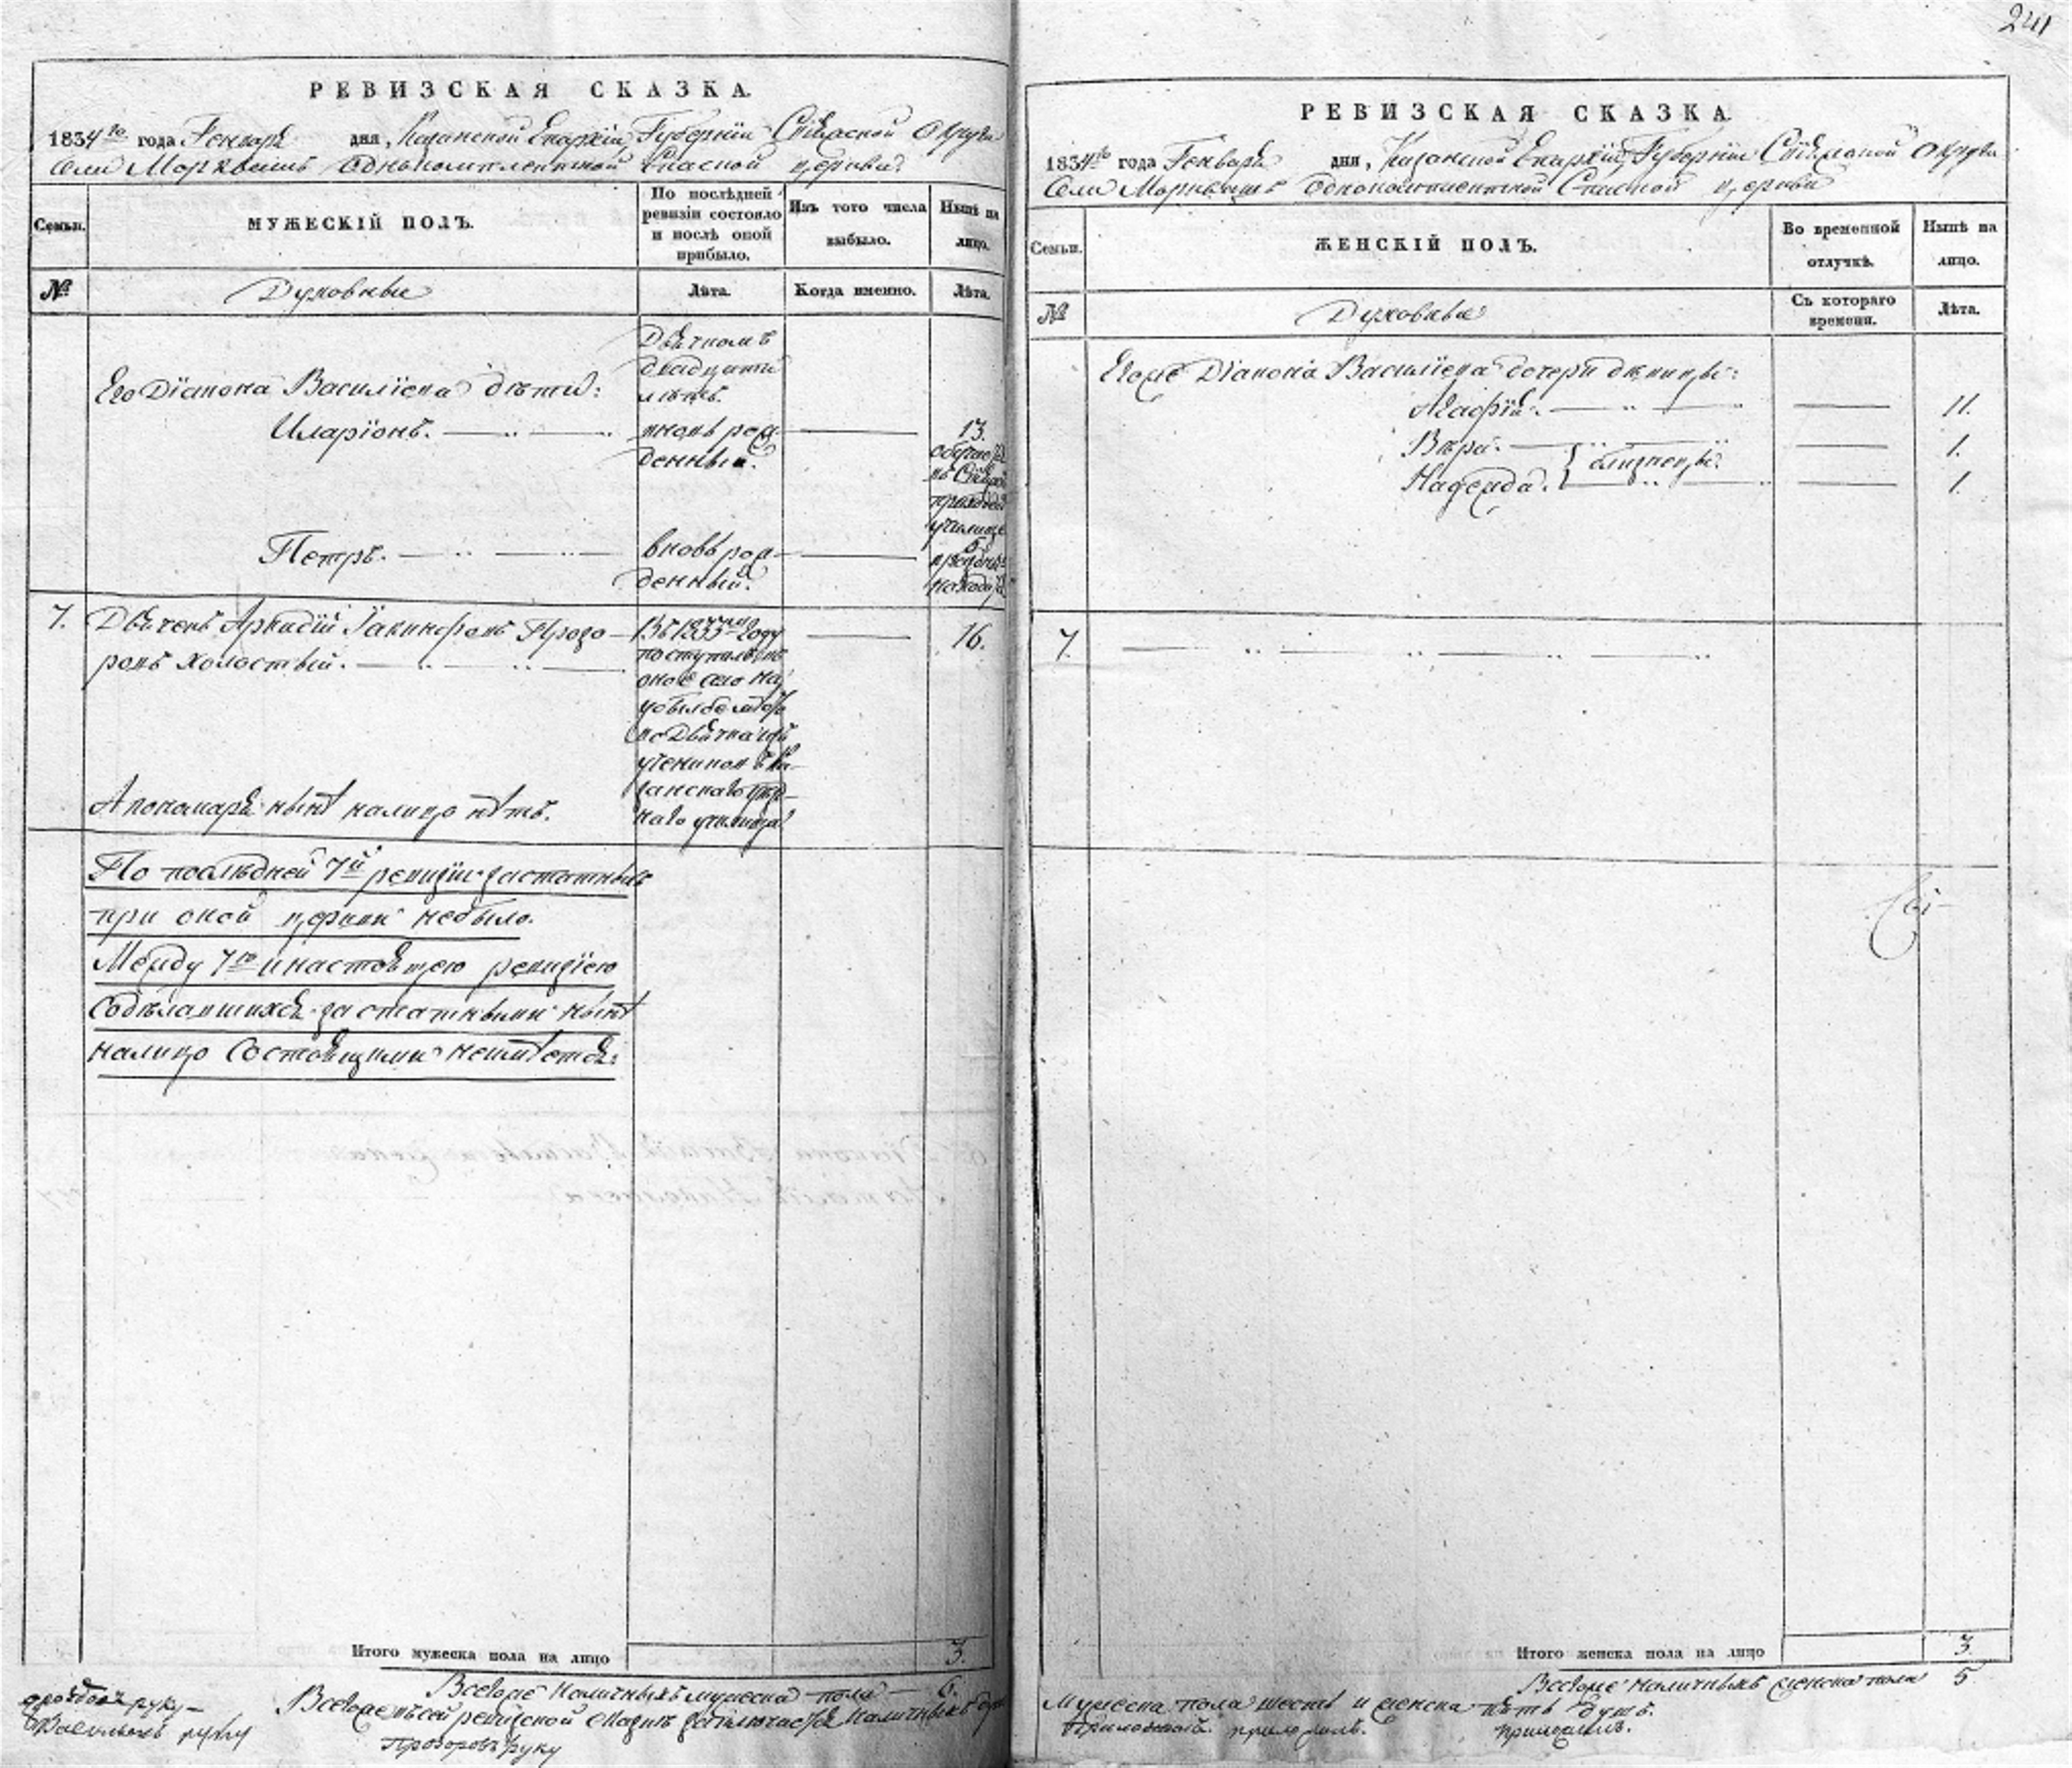 241
РЕВИЗСКАЯ СКАЗКА.
1834го года Генваря дня, Казанской Епархіи, Губерніи Свіяжской Округи
Села Морквашъ Однокомплектной Спасской церкви.
Семьи.
МУЖЕСКІЙ ПОЛЪ.
По послѣдней
ревизіи состояло
и послѣ оной
прибыло.
Изъ того числа
выбыло.
Нынѣ на
лицо.
№
Духовные
Лѣта.
Когда именно.
Лѣта.
Дьячкомъ
двадцати
лѣтъ.
Его Діакона Василіева дѣти:
Иларіонъ.
вновь рож-
денный.
13.
обучается
въ Свіяж
приход
училище
Петръ.
вновь рож-
денный.
5.
находит
7.
Дьячекъ Аркадій Іакинфовъ Прозо-
ровъ холостый.
Въ 1833мъ году
поступилъ въ
оное село на
убылое мѣсто
во Дьячка изъ
учениковъ Ка-
занскаго уѣзд-
наго училища.
16.
А пономаря нынѣ налицо нѣтъ.
По послѣдней 7й ревизіи заштатныхъ
при оной церкви небыло.
Между 7ю и настоящею ревизіею
содѣлавшихся заштатными нынѣ
налицо состоящими неимѣется.
Итого мужеска пола на лицо
3.
Всего же наличныхъ мужеска пола — 6.
Всего же въ сей ревизской сказкѣ заключается наличныхъ душъ
руку
Васильевъ руку
Прозоровъ руку
РЕВИЗСКАЯ СКАЗКА.
1834го года Генваря дня, Казанской Епархіи, Губерніи Свіяжской Округи
Села Морквашъ Однокомплектной Спасской церкви
Семьи.
ЖЕНСКІЙ ПОЛЪ.
Во временной
отлучкѣ.
Нынѣ на
лицо.
№
Духовные
Съ котораго
времени.
Лѣта.
Его же Діакона Василіева дочери дѣвицы:
Агафія.
11.
Вѣра.
близнецы.
1.
Надежда.
1.
7.
Итого женска пола на лицо
3.
Всего же наличныхъ женска пола 5.
Мужеска пола шесть и женска пять душъ.
приложилъ.
приложилъ.